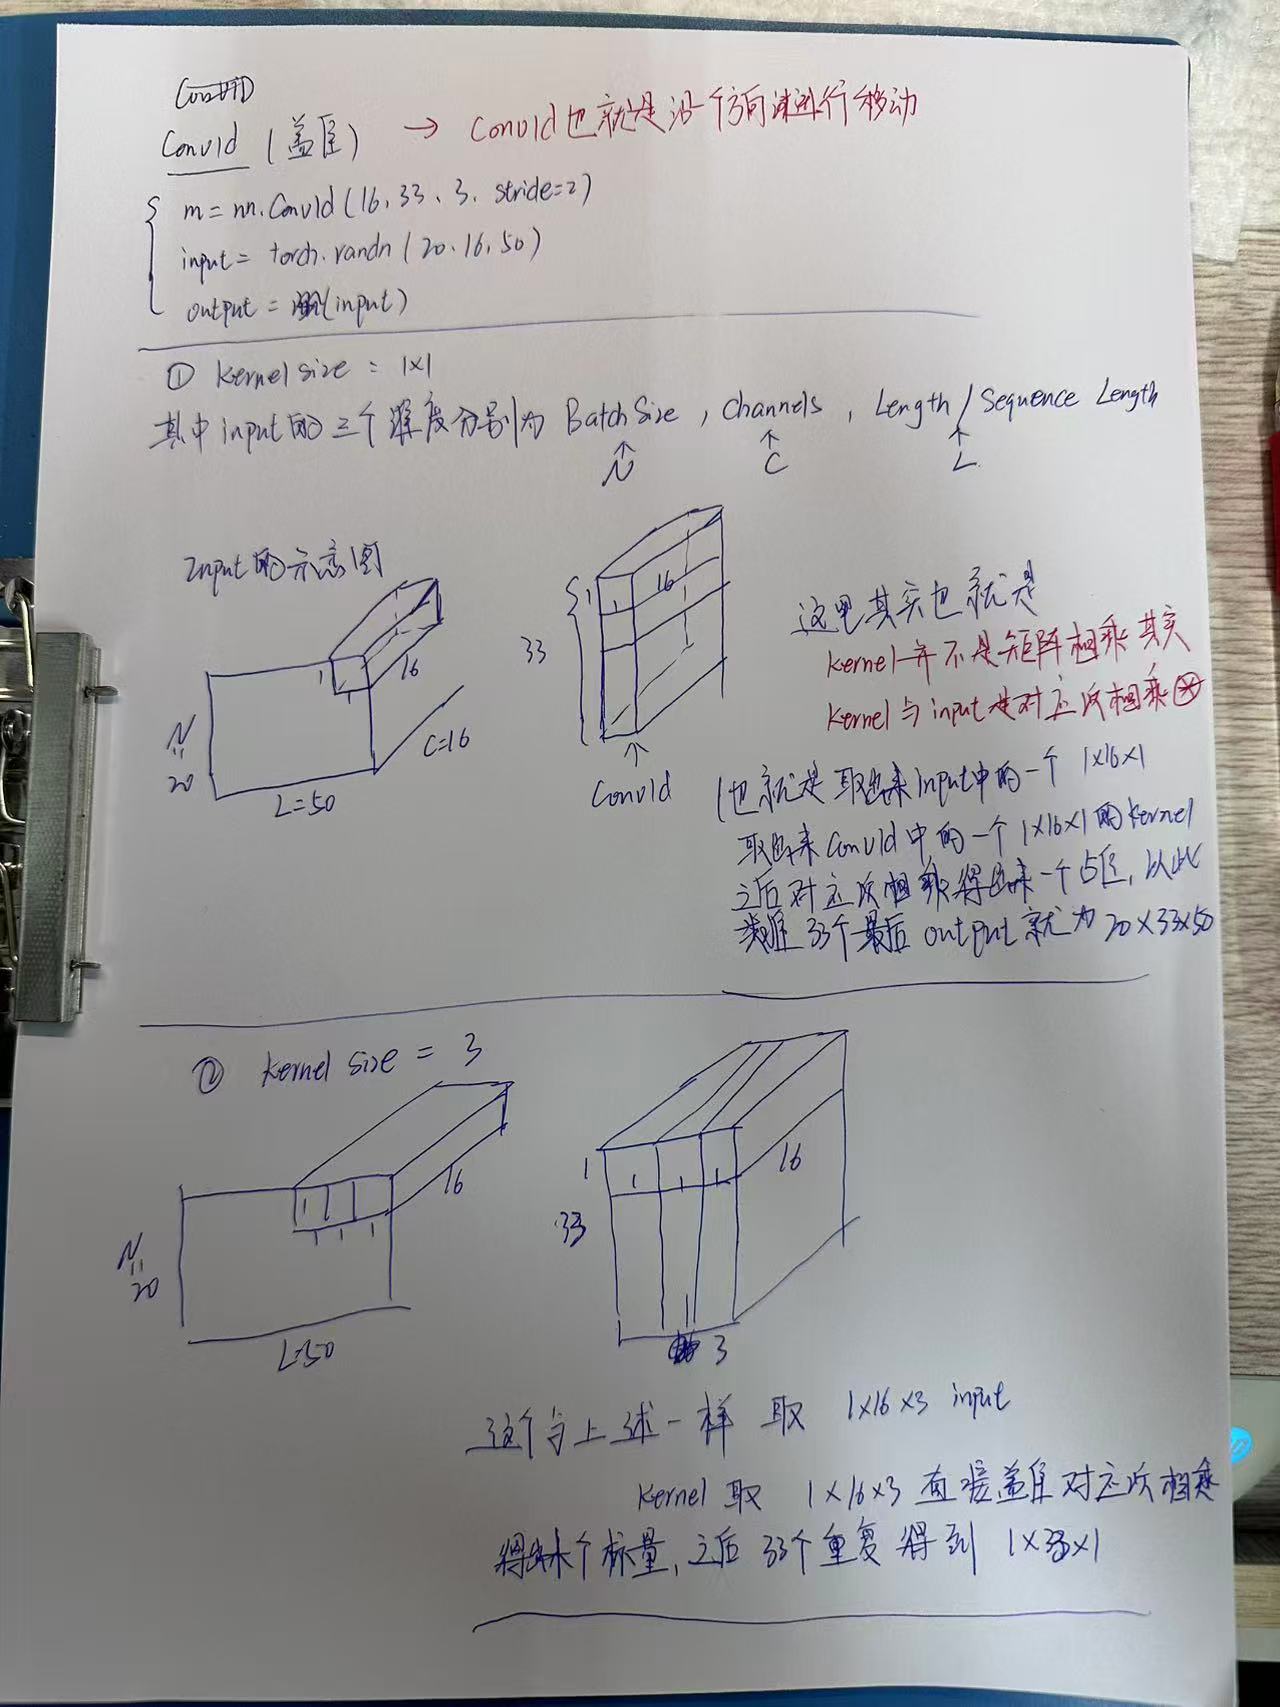 Conv1d (盖住) → Conv1d也就是沿一个方向来进行移动
m = nn.Conv1d (16, 33, 3, stride=2)
input = torch.randn (20, 16, 50)
output = m(input)
① Kernel size = 1×1
其中input的三个维度分别为 Batch Size , Channels , Length / Sequence Length
↑ ↑ ↑
N C L
Input的示意图
1 16
N
=
20
C=16
L=50
1 1 16 1
33
Conv1d
这里其实也就是
Kernel并不是矩阵相乘其实
Kernel与input是对应次相乘
(也就是取出来input中的一个 1×16×1
取出来Conv1d中的一个1×16×1的Kernel
之后对应次相乘得出来一个值,以此
类推 33个最后 output就为 20×33×50
② Kernel size = 3
1 16
1 1 1
N
=
20
L=50
1 1 1 1 16
33
3
这个与上述一样 取 1×16×3 input
Kernel 取 1×16×3 直接盖住对应次相乘
得出来个标量,之后 33个重复得到 1×33×1